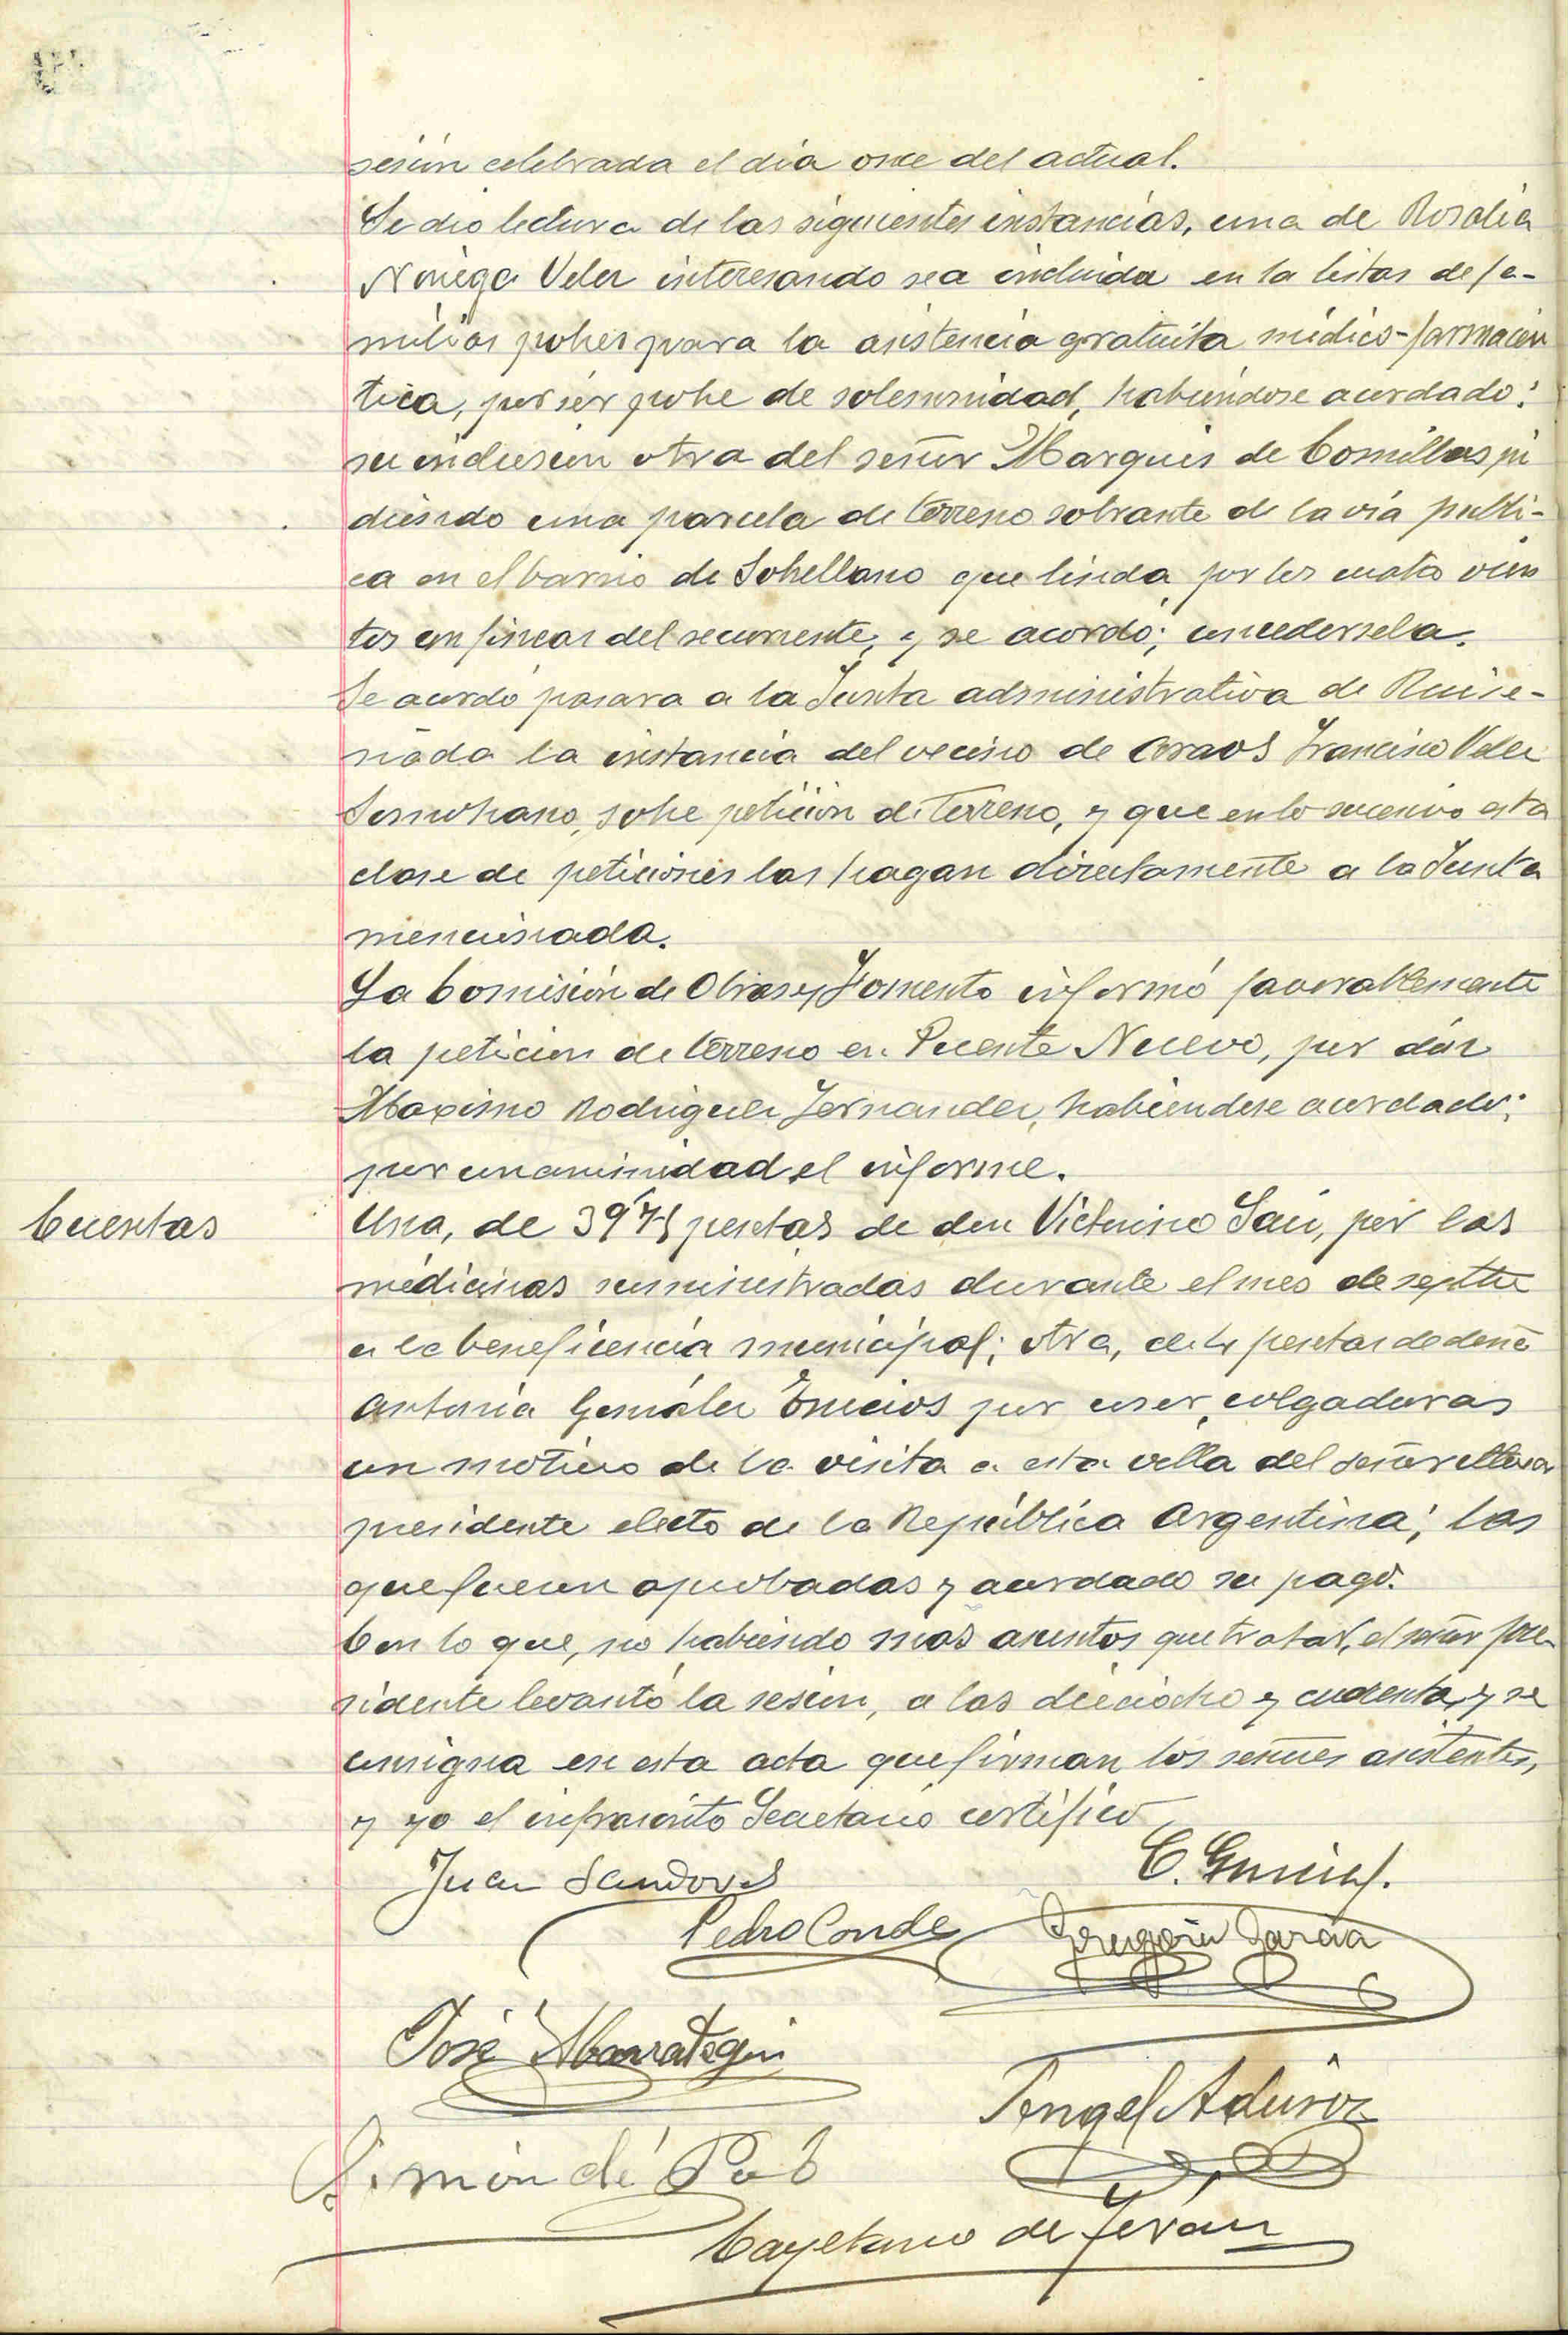 sesión celebrada el día once del actual.
Se dio lectura de las siguientes instancias, una de Rosalía
Noriega Velez interesando sea incluida en la listas de fa-
milias pobres para la asistencia gratuita médico-farmaceu
tica, por ser pobre de solemnidad, habiéndose acordado:
su inclusión otra del señor Marqués de Comillas pi
diendo una parcela de terreno sobrante de la vía públi-
ca en el barrio de Sobrellano que linda por los cuatro vien
tos con fincas del recurrente, y se acordó; concedersela.
Se acordó pasara a la Junta administrativa de Ruise-
ñada la instancia del vecino de Araos Francisco Velez
Somohano, sobre petición de terreno, y que en lo sucesivo esta
clase de peticiones las hagan directamente a la Junta
mencionada.
La Comisión de Obras y Fomento informó favorablemente
la petición de terreno en Puente Nuevo, por don
Maximo Rodriguez Fernandez, habiendose acordado;
por unanimidad el informe.
Cuentas
Una, de 39'75 pesetas de don Victorino San, por las
medicinas suministradas durante el mes de septbre
a la beneficencia municipal; otra, de pesetas de doña
Antonia González por coser colgaduras
con motivo de la visita a esta villa del señor
presidente electo de la República Argentina; las
que fueron aprobadas y acordado su pago.
Con lo que, no habiendo mas asuntos que tratar, el señor pre-
sidente levantó la sesión, a las dieciocho y cuarenta, y se
consigna en esta acta que firman los señores asistentes,
y yo el infrascrito Secretario certifico
Juan Sandoval
C.
Pedro Conde
Gregorio Garcia
José
Angel
Simón de
Cayetano de Terán